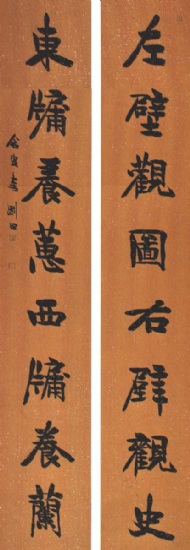 左壁觀圖右壁觀史
東牖養蕙西牖養蘭